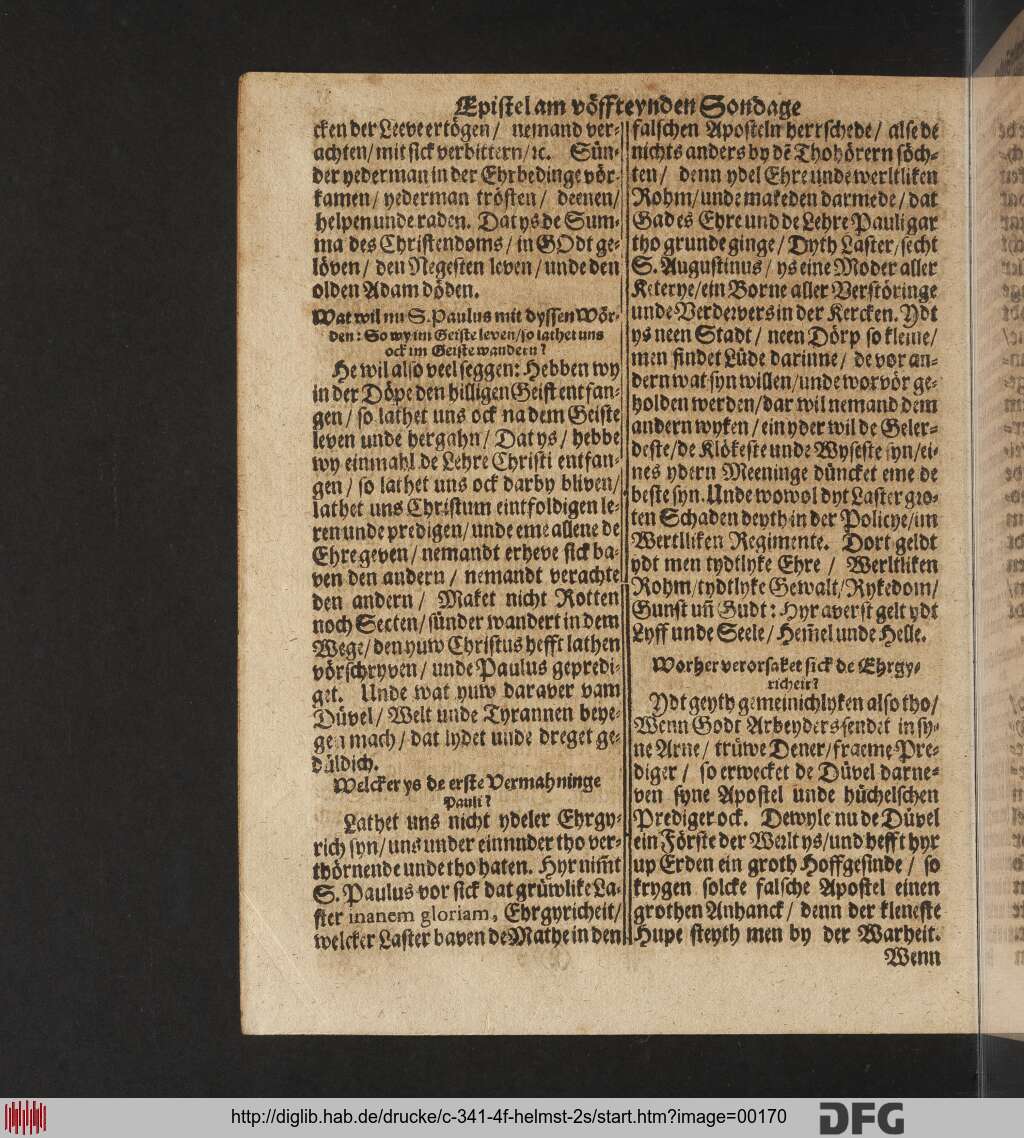 Epistel am vöffteynden Sondage
cken der Leeve ertögen / nemand ver-
achten / mit sick verbittern / ꝛc. Sün-
der yederman in der Ehrbedinge vör-
kamen / yederman trösten / deenen /
helpen unde raden. Dat ys de Sum-
ma des Christendoms / in GOdt ge-
löven / den Negesten leven / unde den
olden Adam döden.
Wat wil nu S. Paulus mit dyssen Wör-
den: So wy im Geiste leven / so lathet uns
ock im Geiste wandern?
He wil also veel seggen: Hebben wy
in der Döpe den hilligen Geist entfan-
gen / so lathet uns ock na dem Geiste
leven unde hergahn / Dat ys / hebbe
wy einmahl de Lehre Christi entfan-
gen / so lathet uns ock darby bliven /
lathet uns Christum eintfoldigen le-
ren unde predigen / unde eme allene de
Ehre geven / nemandt erheve sick ba-
ven den andern / nemandt verachte
den andern / Maket nicht Rotten
noch Secten / sünder wandert in dem
Wege / den yuw Christus hefft lathen
vörschryven / unde Paulus gepredi-
get. Unde wat yuw daraver vam
Düvel / Welt unde Tyrannen beye-
gen mach / dat lydet unde dreget ge-
düldich.
Welcker ys de erste Vermahninge
Pauli?
Lathet uns nicht ydeler Ehrgy-
rich syn / uns under einnnder tho ver-
thörnende unde tho haten. Hyr nim̃t
S. Paulus vor sick dat grüwlike La-
ster inanem gloriam, Ehrgyricheit /
welcker Laster baven de Mathe in den
falschen Aposteln herrschede / alse de
nichts anders by dẽ Thohörern söch-
ten / denn ydel Ehre unde werltliken
Rohm / unde makeden darmede / dat
Gades Ehre und de Lehre Pauli gar
tho grunde ginge / Dyth Laster / secht
S. Augustinus / ys eine Moder aller
Keterye / ein Borne aller Verstöringe
unde Verderwers in der Kercken. Ydt
ys neen Stadt / neen Dörp so kleine /
men findet Lüde darinne / de vor an-
dern wat syn willen / unde worvör ge-
holden werden / dar wil nemand dem
andern wyken / ein yder wil de Geler-
deste / de Klökeste unde Wyseste syn / ei-
nes ydern Meeninge düncket eme de
beste syn. Unde wowol dyt Laster gro-
ten Schaden deyth in der Policye / im
Wertlliken Regimente. Dort geldt
ydt men tydtlyke Ehre / Werltliken
Rohm / tydtlyke Gewalt / Rykedom /
Gunst uñ Gudt: Hyr averst gelt ydt
Lyff unde Seele / Hem̃el unde Helle.
Worher verorsaket sick de Ehrgy-
richeit?
Ydt geyth gemeinichlyken also tho /
Wenn Godt Arbeyders sendet in sy-
ne Arne / trüwe Dener / fraeme Pre-
diger / so erwecket de Düvel darne-
ven syne Apostel unde hüchelschen
Prediger ock. Dewyle nu de Düvel
ein Förste der Werlt ys / und hefft hyr
up Erden ein groth Hoffgesinde / so
krygen solcke falsche Apostel einen
grothen Anhanck / denn der kleneste
Hupe steyth men by der Warheit.
Wenn
http://diglib.hab.de/drucke/c-341-4f-helmst-2s/start.htm?image=00170
DFG